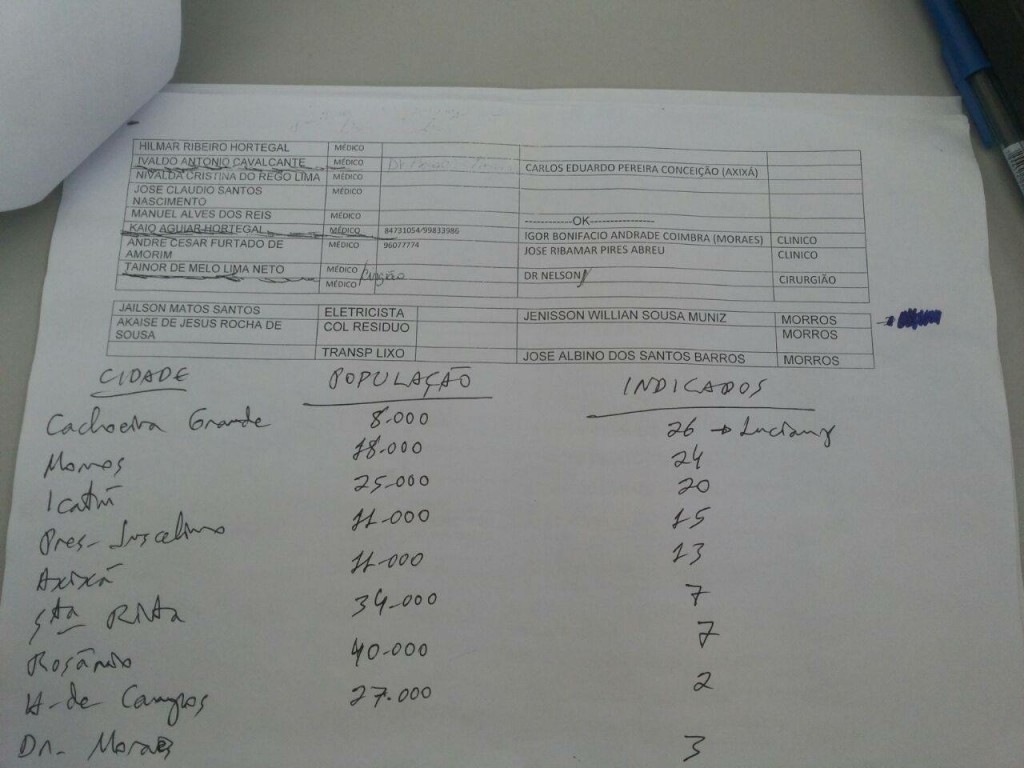 HILMAR RIBEIRO HORTEGAL MÉDICO
IVALDO ANTONIO CAVALCANTE MÉDICO CARLOS EDUARDO PEREIRA CONCEIÇÃO (AXIXÁ)
NIVALDA CRISTINA DO REGO LIMA MÉDICO
JOSE CLAUDIO SANTOS MÉDICO
NASCIMENTO
MANUEL ALVES DOS REIS MÉDICO ------------OK----------------
KAIO AGUIAR HORTEGAL MÉDICO 84731054/99833986 IGOR BONIFACIO ANDRADE COIMBRA (MORAES) CLINICO
ANDRE CESAR FURTADO DE MÉDICO 96077774 JOSE RIBAMAR PIRES ABREU CLINICO
AMORIM
TAINOR DE MELO LIMA NETO MÉDICO DR NELSON CIRURGIÃO
MÉDICO
JAILSON MATOS SANTOS ELETRICISTA JENISSON WILLIAN SOUSA MUNIZ MORROS
AKAISE DE JESUS ROCHA DE COL RESIDUO MORROS
SOUSA
TRANSP LIXO JOSE ALBINO DOS SANTOS BARROS MORROS
CIDADE POPULAÇÃO INDICADOS
Cachoeira Grande 8.000 26 → Luciany
Morros 18.000 24
Icatú 25.000 20
Pres- Juscelino 11.000 15
Axixá 11.000 13
Sta Rita 34.000 7
Rosário 40.000 7
H. de Campos 27.000 2
Dr. Moraes 3